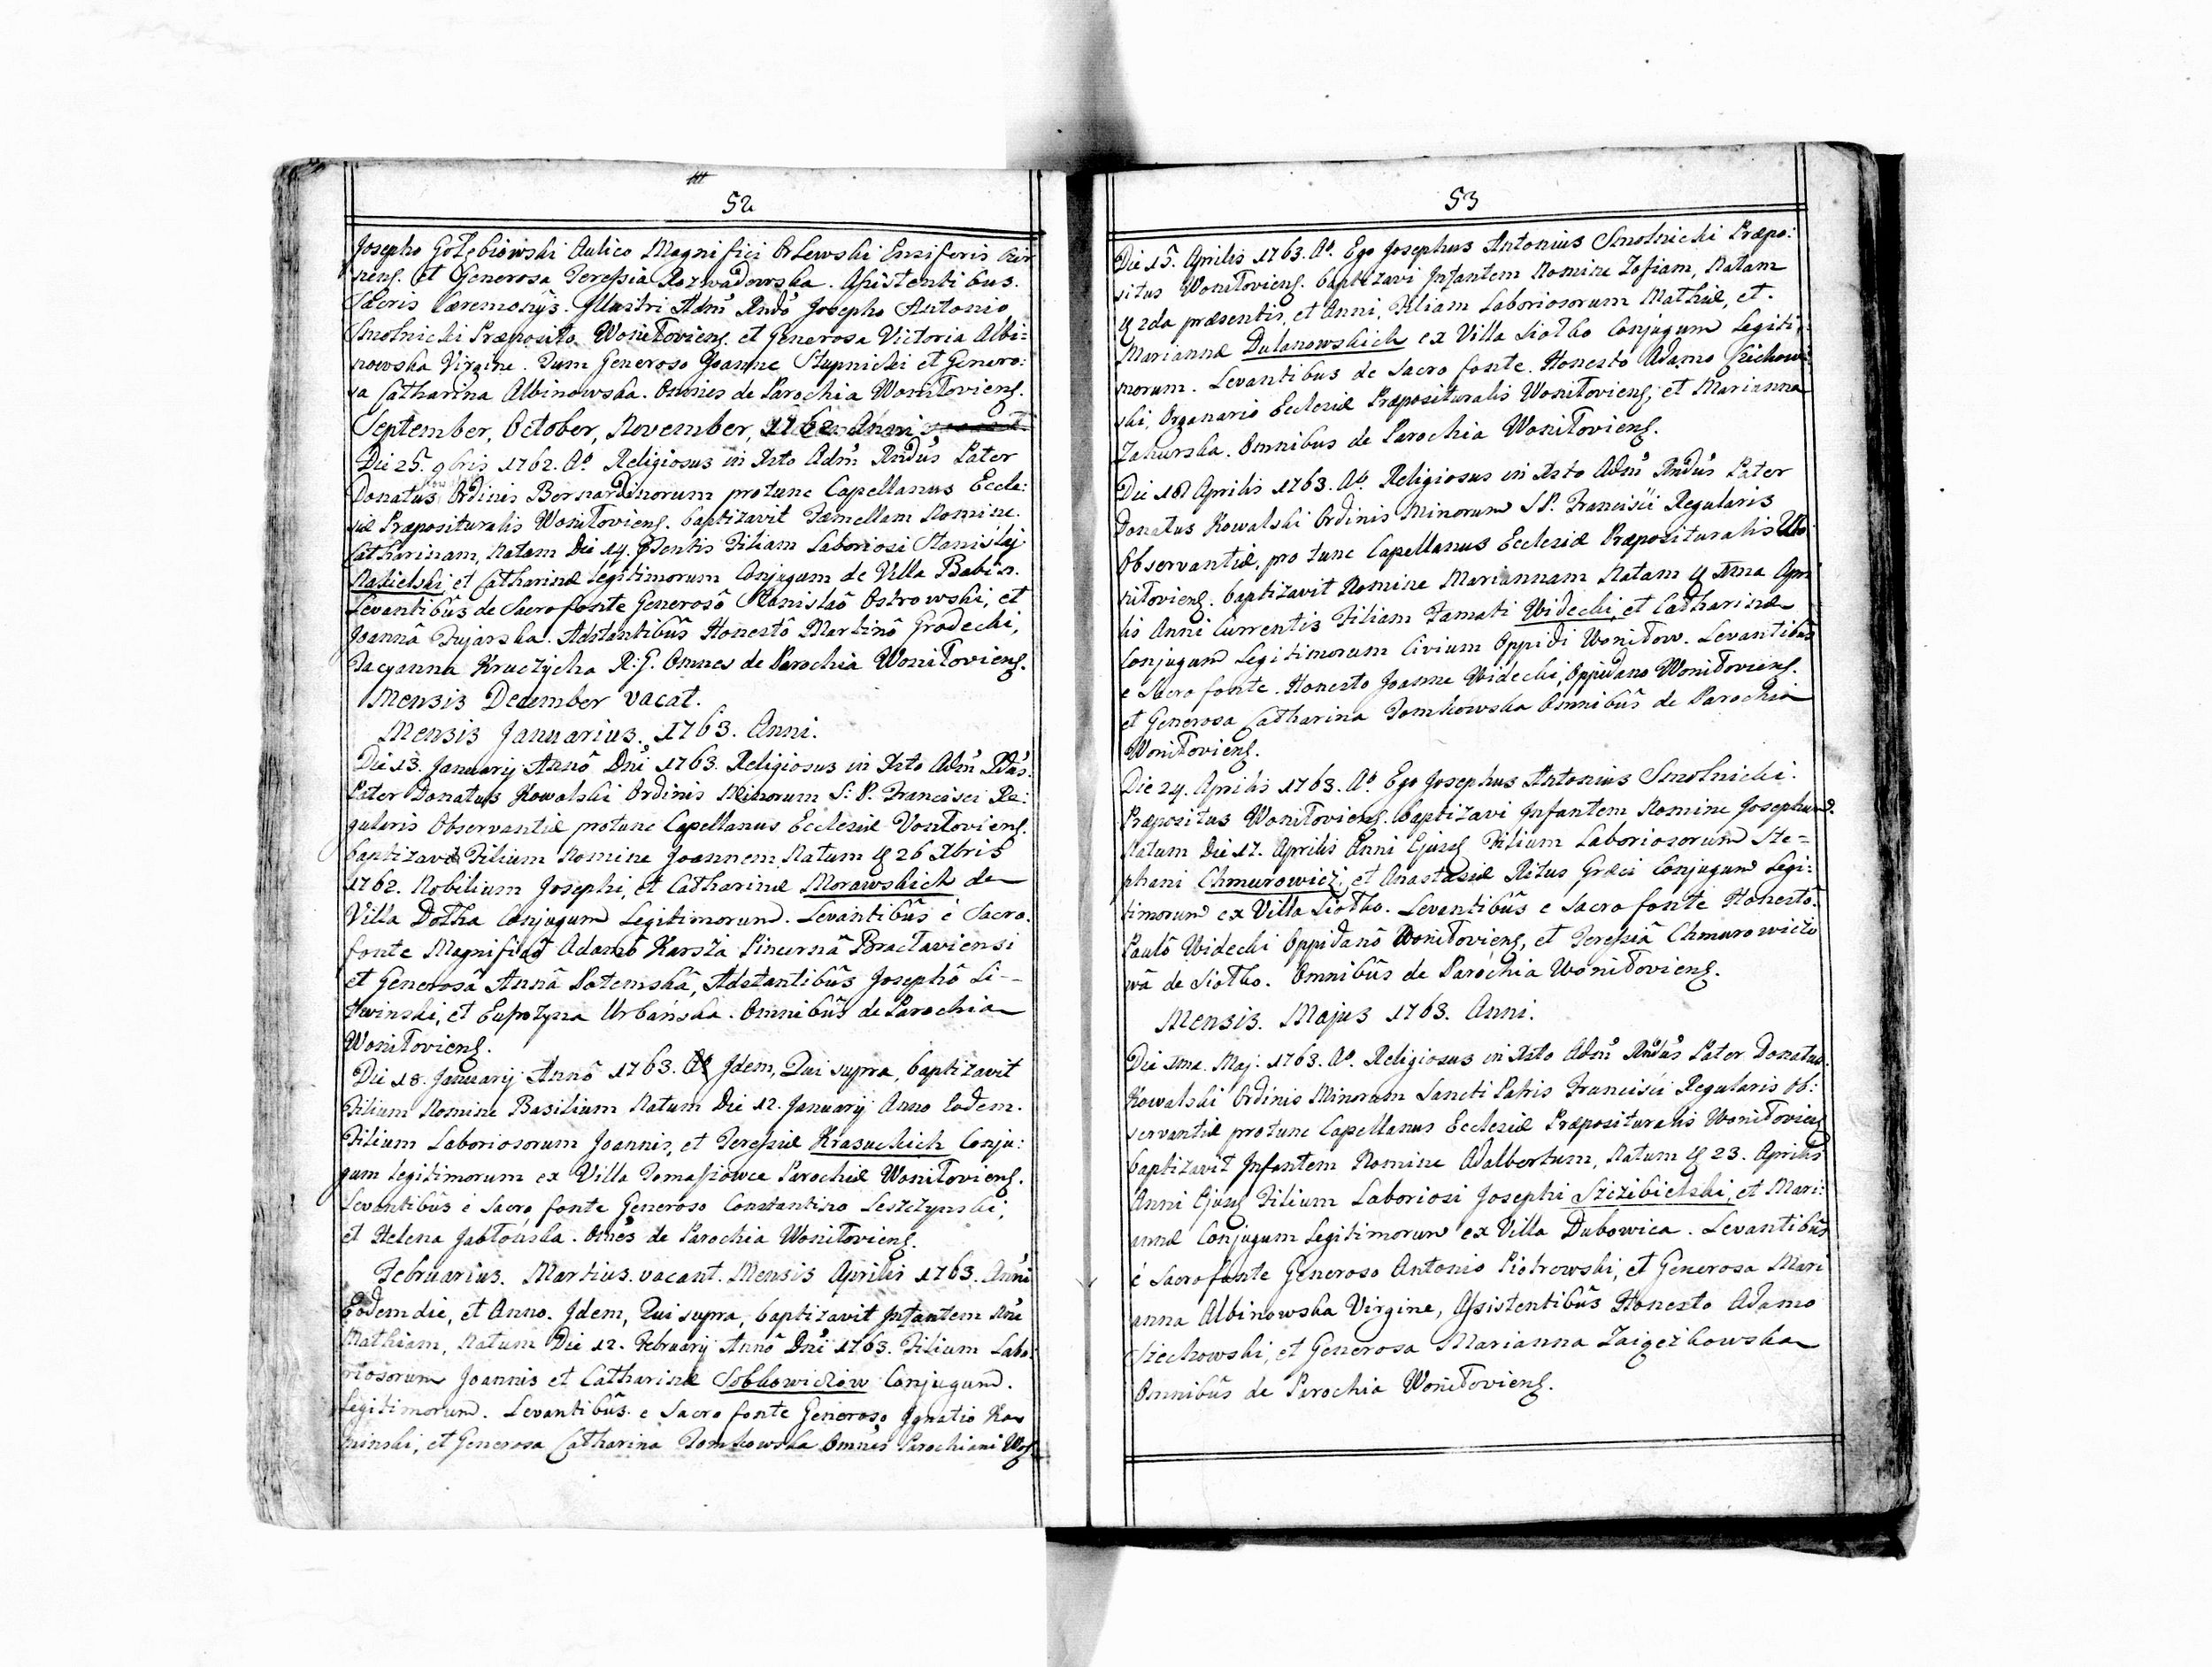 52
Josepho Gołębiowski Aulico Magnifici Orlewski Ensiferis
nens. et Generosa Teressia Rozwadowska. Assistentibus.
Sacris Cæremonijs. Illustri Adm Rndo Josepho Antonio
Smolnicki Præposito Woniłoviens. et Generosa Victoria Albi=
nowska Virgine. Tum Generoso Joanne Słupnicki et Genero:
sa Catharina Albinowska. Omnes de Parochia Woniłoviens.
September, October, November, 1762. Anni
Die 25. 9bris 1762. Ao Religiosus in Xsto Adm Rndus Pater
Donatus Ordinis Bernardinorum protunc Capellanus Eccle:
siæ Præposituralis Woniłoviens. baptizavit Famellam Nomine.
Catharinam, Natam Die 14. Psentis Filiam Laboriosi Stanislaj
Nasielski, et Catharinæ legitimorum Conjugum de Villa Babin.
Levantibûs de Sacro fonte Generosô Stanislaô Ostrowski, et
Joannâ Dujarska. Adstantibûs Honestô Martinô Grodecki,
Tacyanna Kruczycha R: G. Omnes de Parochia Woniłoviens.
Mensis December vacat.
Mensis Januarius. 1763. Anni.
Die 13. Januarij Annô Dni 1763. Religiosus in Xsto Adm Rdus
Pater Donatus Kowalski Ordinis Minorum S: P. Francisci Re:
gularis Observantiæ protunc Capellanus Ecclesiæ Vonłoviens.
baptizavit Filium Nomine Joannem Natum 26 Xbris
1762. Nobilium Josephi, et Catharinæ Morawskich de
Villa Dołha Conjugum Legitimorum. Levantibûs è Sacro.
fonte Magnificô Adamô Karsza Pincernâ Bracłaviensi
et Generosâ Annâ Potemskâ, Adstantibûs Josephô Li-
twinski, et Eufrozyna Urbańska. Omnibûs de Parochia
Woniłoviens.
Die 18. Januarij Annô 1763. Ao Idem, Qui supra, baptizavit
Filium Nomine Basilium Natum Die 12. Januarij Anno Eodem.
Filium Laboriosorum Joannis, et Teressiæ Krasuckich Conju:
gum legitimorum ex Villa Tomaszowce Parochiæ Woniłoviens.
Levantibûs è Sacro fonte Generoso Constantino Leszczynski,
et Helena Jabłońska. Omes de Parochia Woniłoviens.
Februarius. Martius. vacant. Mensis Aprilis 1763. Anni
Eodem die, et Anno. Idem, Qui supra, baptizavit Infantem Nne
Mathiam, Natum Die 12. Februarij Annô Dni 1763. Filium Labo:
riosorum Joannis et Catharinæ Sobkowiczów Conjugum.
Legitimorum. Levantibûs e Sacro fonte Generoso Ignatio Ka
minski, et Generosa Catharina Tomkowska Omnes Parochiani
53
Die 15. Aprilis 1763. Ao. Ego Josephus Antonius Smolnicki Præpo:
situs Woniłoviens. baptizavi Infantem Nomine Zofiam, Natam
2da præsentis, et Anni, Filiam Laboriosorum Mathiæ, et.
Mariannæ Dulanowskich ex Villa Siołko Conjugum Legiti,
morum. Levantibus de Sacro fonte. Honesto Adamo
ski, Organario Ecclesiæ Præposituralis Woniłoviens, et Marianna
Zahurska. Omnibus de Parochia Woniłoviens.
Die 18 Aprilis 1763. Ao. Religiosus in Xsto Adm Rndus Pater
Donatus Kowalski Ordinis Minorum S P. Francisci Regularis
Observantiæ, pro tunc Capellanus Ecclesiæ Præposituralis Wo
niłoviens. baptizavit Nomine Mariannam Natam Apri
lis Anni Currentis Filiam Famati Widecki, et Catharinæ
Conjugum Legitimorum Civium Oppidi Woniłow. Levantibus
e Sacro fonte. Honesto Joanne Widecki, Oppidano Woniłoviens.
et Generosa Catharina Tomkowska Omnibûs de Parochia
Woniłoviens.
Die 24. Aprilis 1763. Ao. Ego Josephus Antonius Smolnicki.
Præpositus Woniłoviens. baptizavi Infantem Nomine Josephum.
Natum Die 17. Aprilis Anni Ejusq Filium Laboriosorum Ste=
phani Chmurowicz, et Anastasiæ Ritus Græci Conjugum Legi:
timorum ex Villa Siołko. Levantibûs e Sacro fonte Honestô.
Paulô Widecki Oppidanô Woniłoviens, et Teressiâ Chmurowiczo
wâ de Siołko. Omnibûs de Parochia Woniłoviens.
Mensis. Majus 1763. Anni.
Die 1ma Maj: 1763. Ao. Religiosus in Xsto Adm Rndus Pater Donatus
Kowalski Ordinis Minorum Sancti Patris Francisci Regularis Ob:
servantiæ protunc Capellanus Ecclesiæ Præposituralis Woniłoviens
baptizavit Infantem Nomine Adalbertum, Natum 23. Aprilis
Anni Ejusq Filium Laboriosi Josephi Szczibielski, et Mari:
annæ Conjugum Legitimorum ex Villa Dubowica. Levantibûs
è Sacro fonte Generoso Antonio Piotrowski, et Generosa Mari
anna Albinowska Virgine, Assistentibûs Honesto Adamo
Szechowski, et Generosa Marianna
Omnibûs de Parochia Woniłoviens.